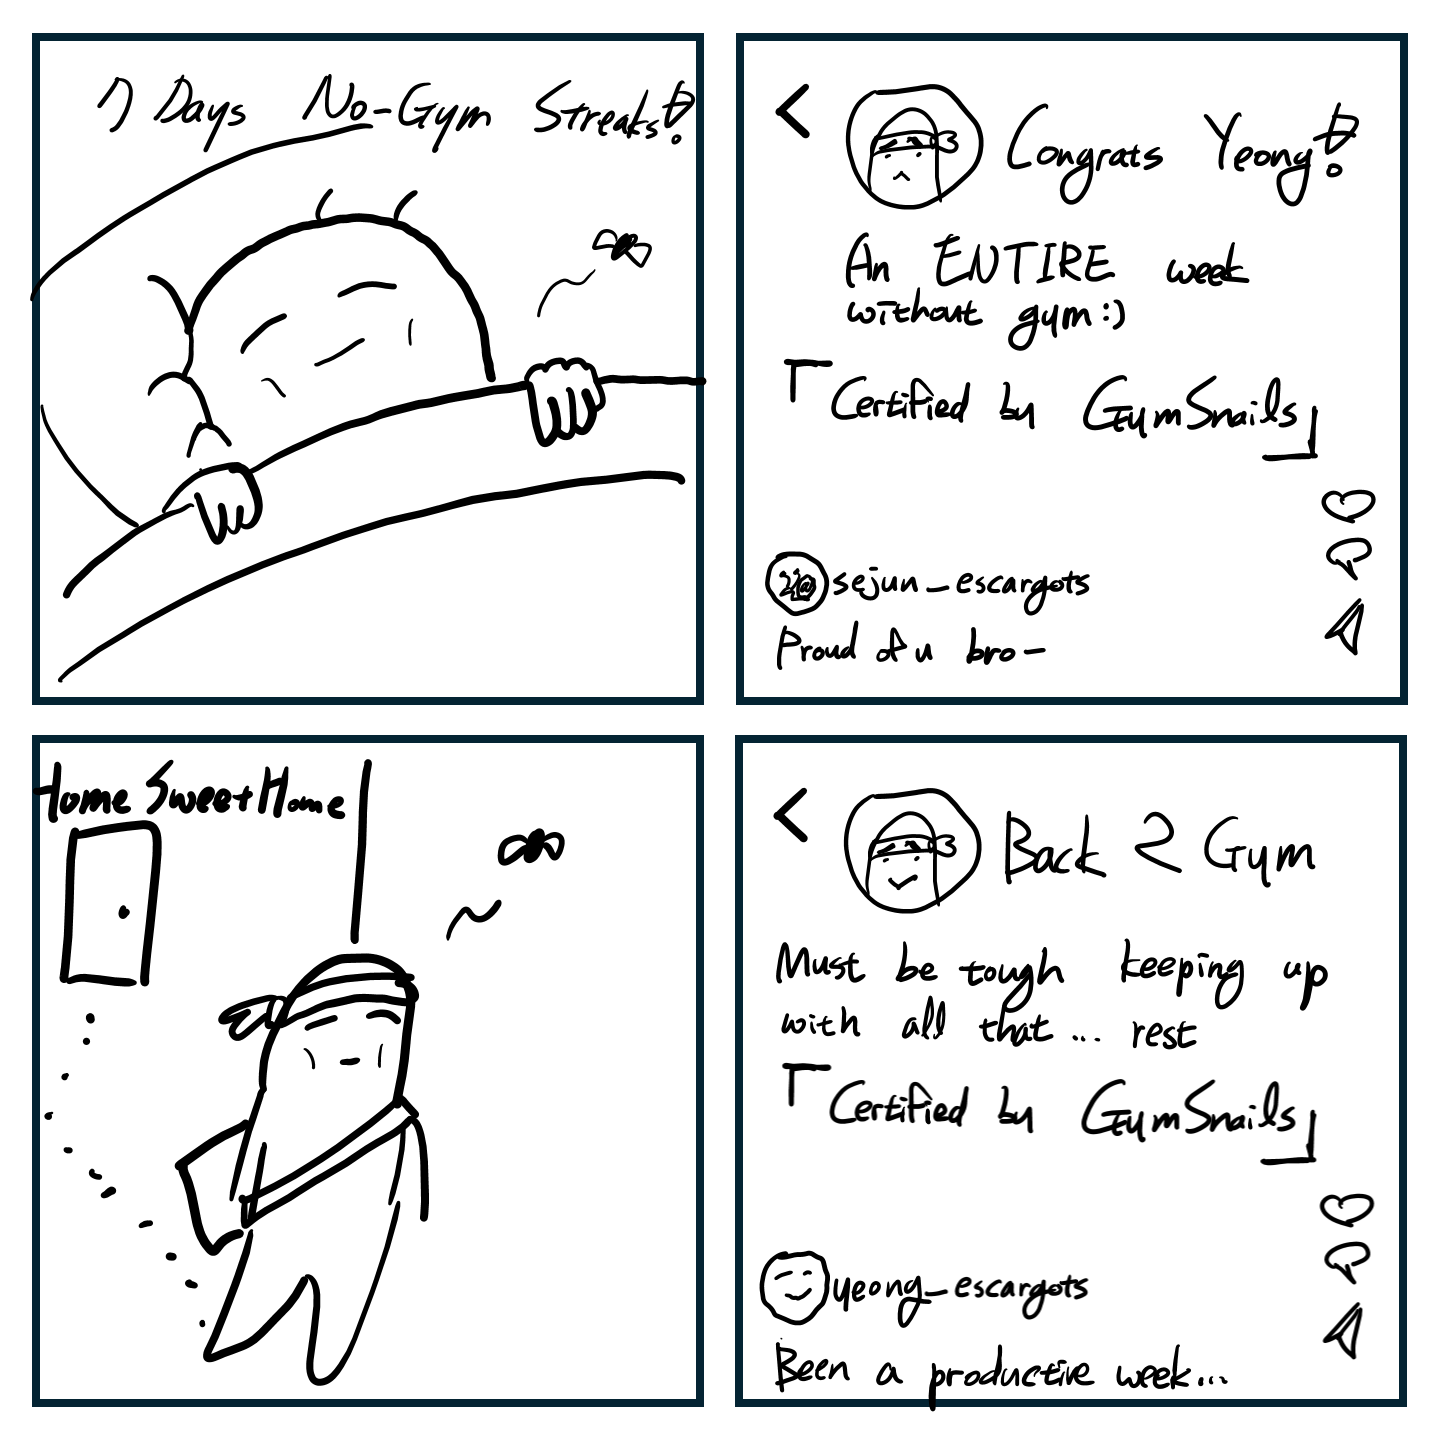 7 Days No-Gym Streaks!
Congrats Yeong!
An ENTIRE week
without gym:)
「Certified by GymSnails」
sejun_escargots
Proud of u bro-
Home Sweet Home
Back 2 Gym
Must be tough keeping up
with all that... rest
「Certified by GymSnails」
yeong_escargots
Been a productive week...